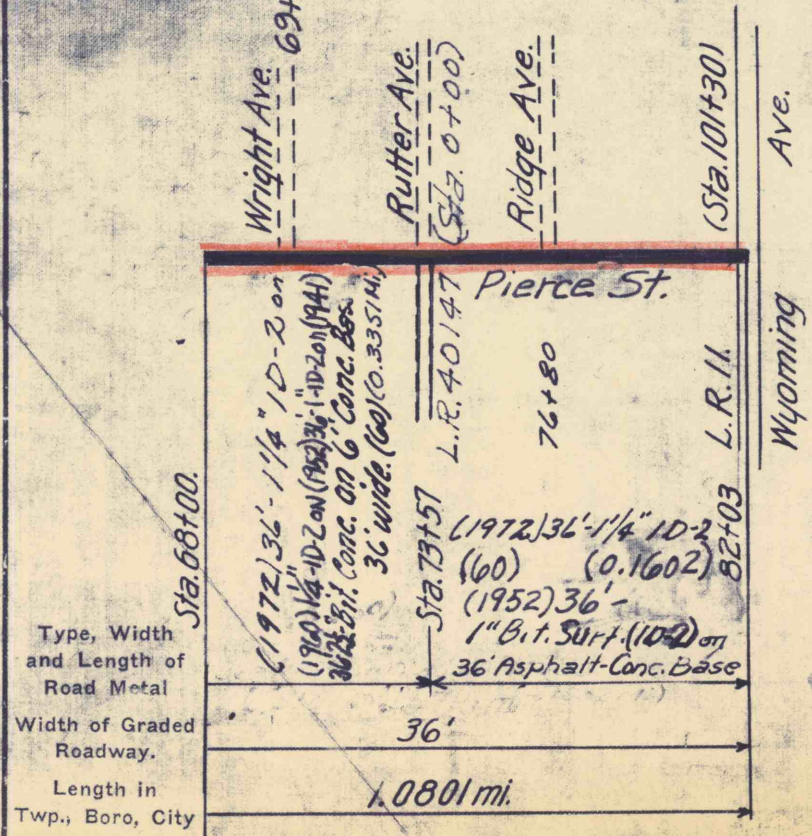 Wright Ave.
69+
Rutter Ave.
(Sta. 0+00)
Ridge Ave.
(Sta. 101+30)
Ave.
Wyoming
Pierce St.
Sta. 68+00.
(1972) 36'-1 1/4" ID-2 on
(1960) 1 1/4" ID-2 on (1952) 36'-1"-ID-2 on (1941)
Bit. Conc. on 6" Conc. Bas.
36' wide. (60) (0.3351 Mi.)
Sta. 73+57
L.R. 40147
76+80
L.R. 11.
82+03
(1972) 36'-1 1/4" ID-2
(60) (0.1602)
(1952) 36'-
1" Bit. Surf. (ID-2) on
36' Asphalt-Conc. Base
Type, Width
and Length of
Road Metal
Width of Graded
Roadway.
36'
Length in
Twp., Boro, City
1.0801 mi.